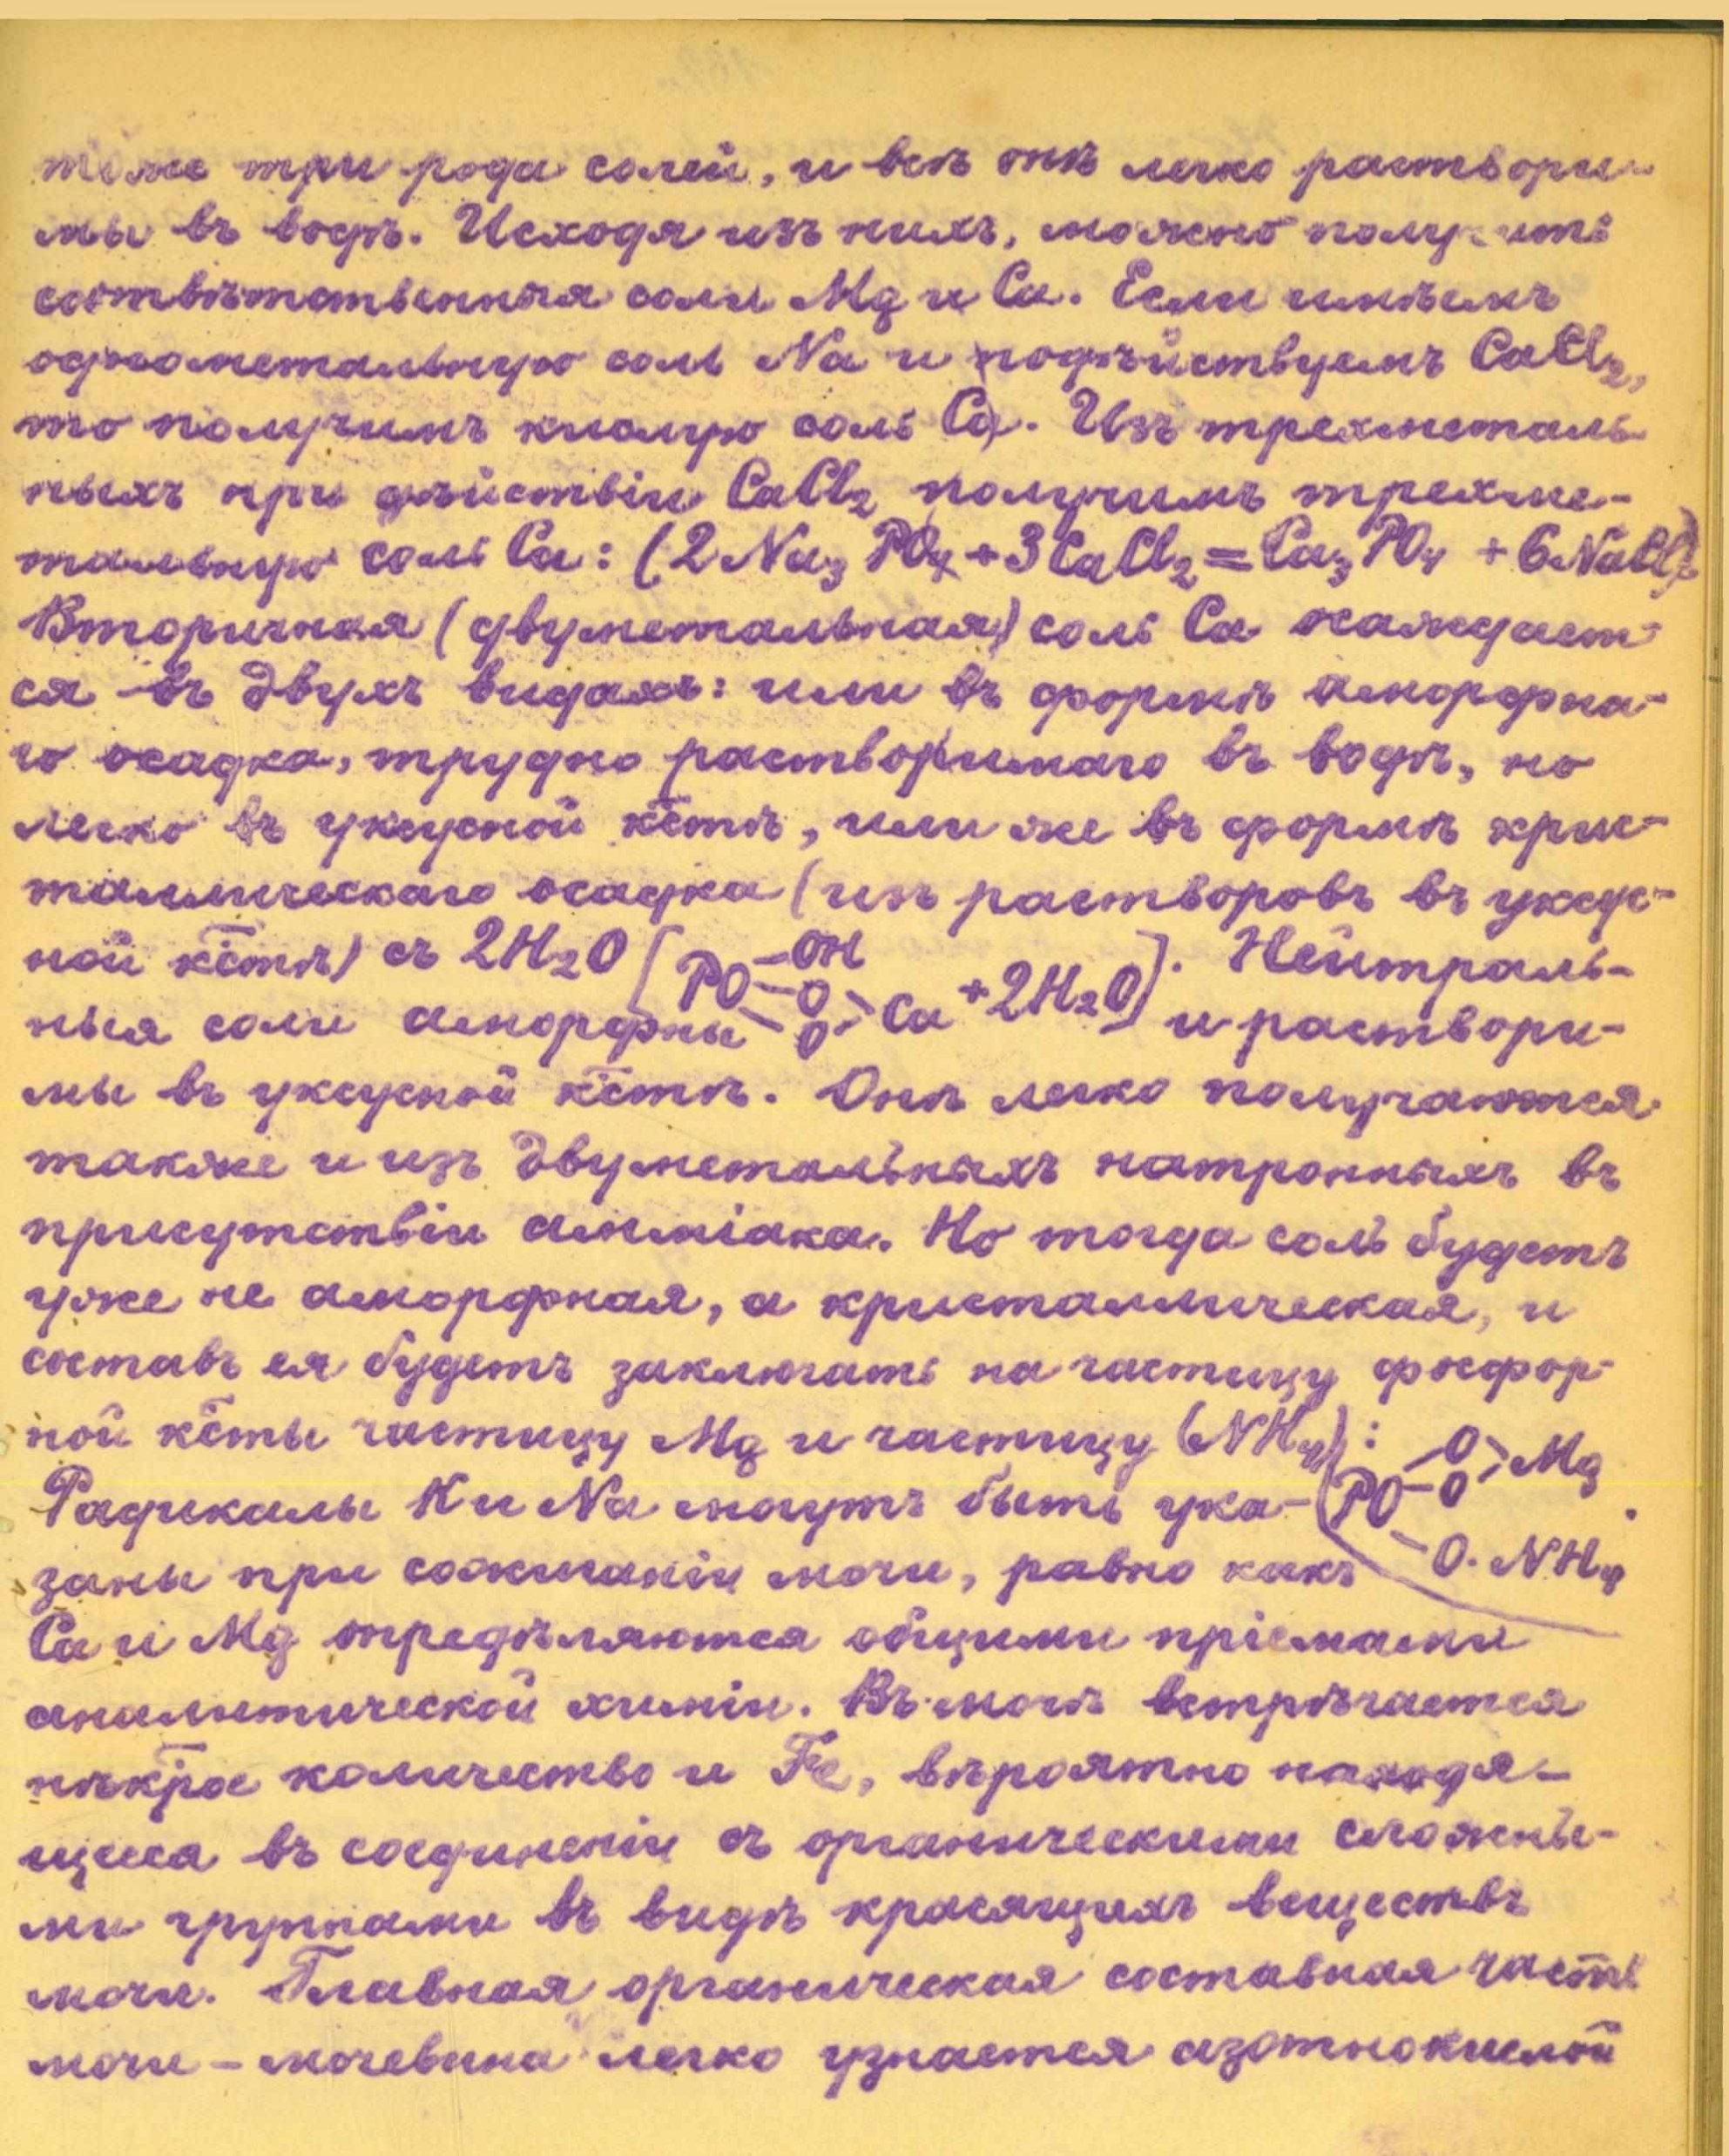 тоже три рода солей, и всѣ онѣ легко раствори-
мы въ водѣ. Исходя изъ нихъ, можно получить
соотвѣтственныя соли Mg и Ca. Если имѣемъ
однометальную соль Na и подѣйствуемъ CaCl₂,
то получимъ кислую соль Ca. Изъ трехметаль-
ныхъ при дѣйствіи CaCl₂ получимъ трехме-
тальную соль Ca: (2Na₃PO₄ + 3CaCl₂ = Ca₃PO₄ + 6NaCl)
Вторичная (двуметальная) соль Ca осаждает-
ся въ двухъ видахъ: или въ формѣ аморфна-
го осадка, трудно растворимаго въ водѣ, но
легко въ уксусной к̅с̅тѣ, или же въ формѣ крис-
таллическаго осадка (изъ растворовъ въ уксус-
ной к̅с̅тѣ) съ 2H₂O [PO–OH –O –O >Ca + 2H₂O]. Нейтраль-
ныя соли аморфны и раствори-
мы въ уксусной к̅с̅тѣ. Онѣ легко получаются
также и изъ двуметальныхъ натронныхъ въ
присутствіи амміака. Но тогда соль будетъ
уже не аморфная, а кристаллическая, и
составъ ея будетъ заключать на частицу фосфор-
ной к̅с̅ты частицу Mg и частицу (NH₄): (PO –O –O >Mg –O.NH₄.
Радикалы K и Na могутъ быть ука-
заны при сожиганіи мочи, равно какъ
Ca и Mg опредѣляются общими пріемами
аналитической химіи. Въ мочѣ встрѣчается
нѣк̅рое количество и Fe, вѣроятно находя-
щееся въ соединеніи съ органическими сложны-
ми группами въ видѣ красящихъ веществъ
мочи. Главная органическая составная часть
мочи – мочевина легко узнается азотнокислой